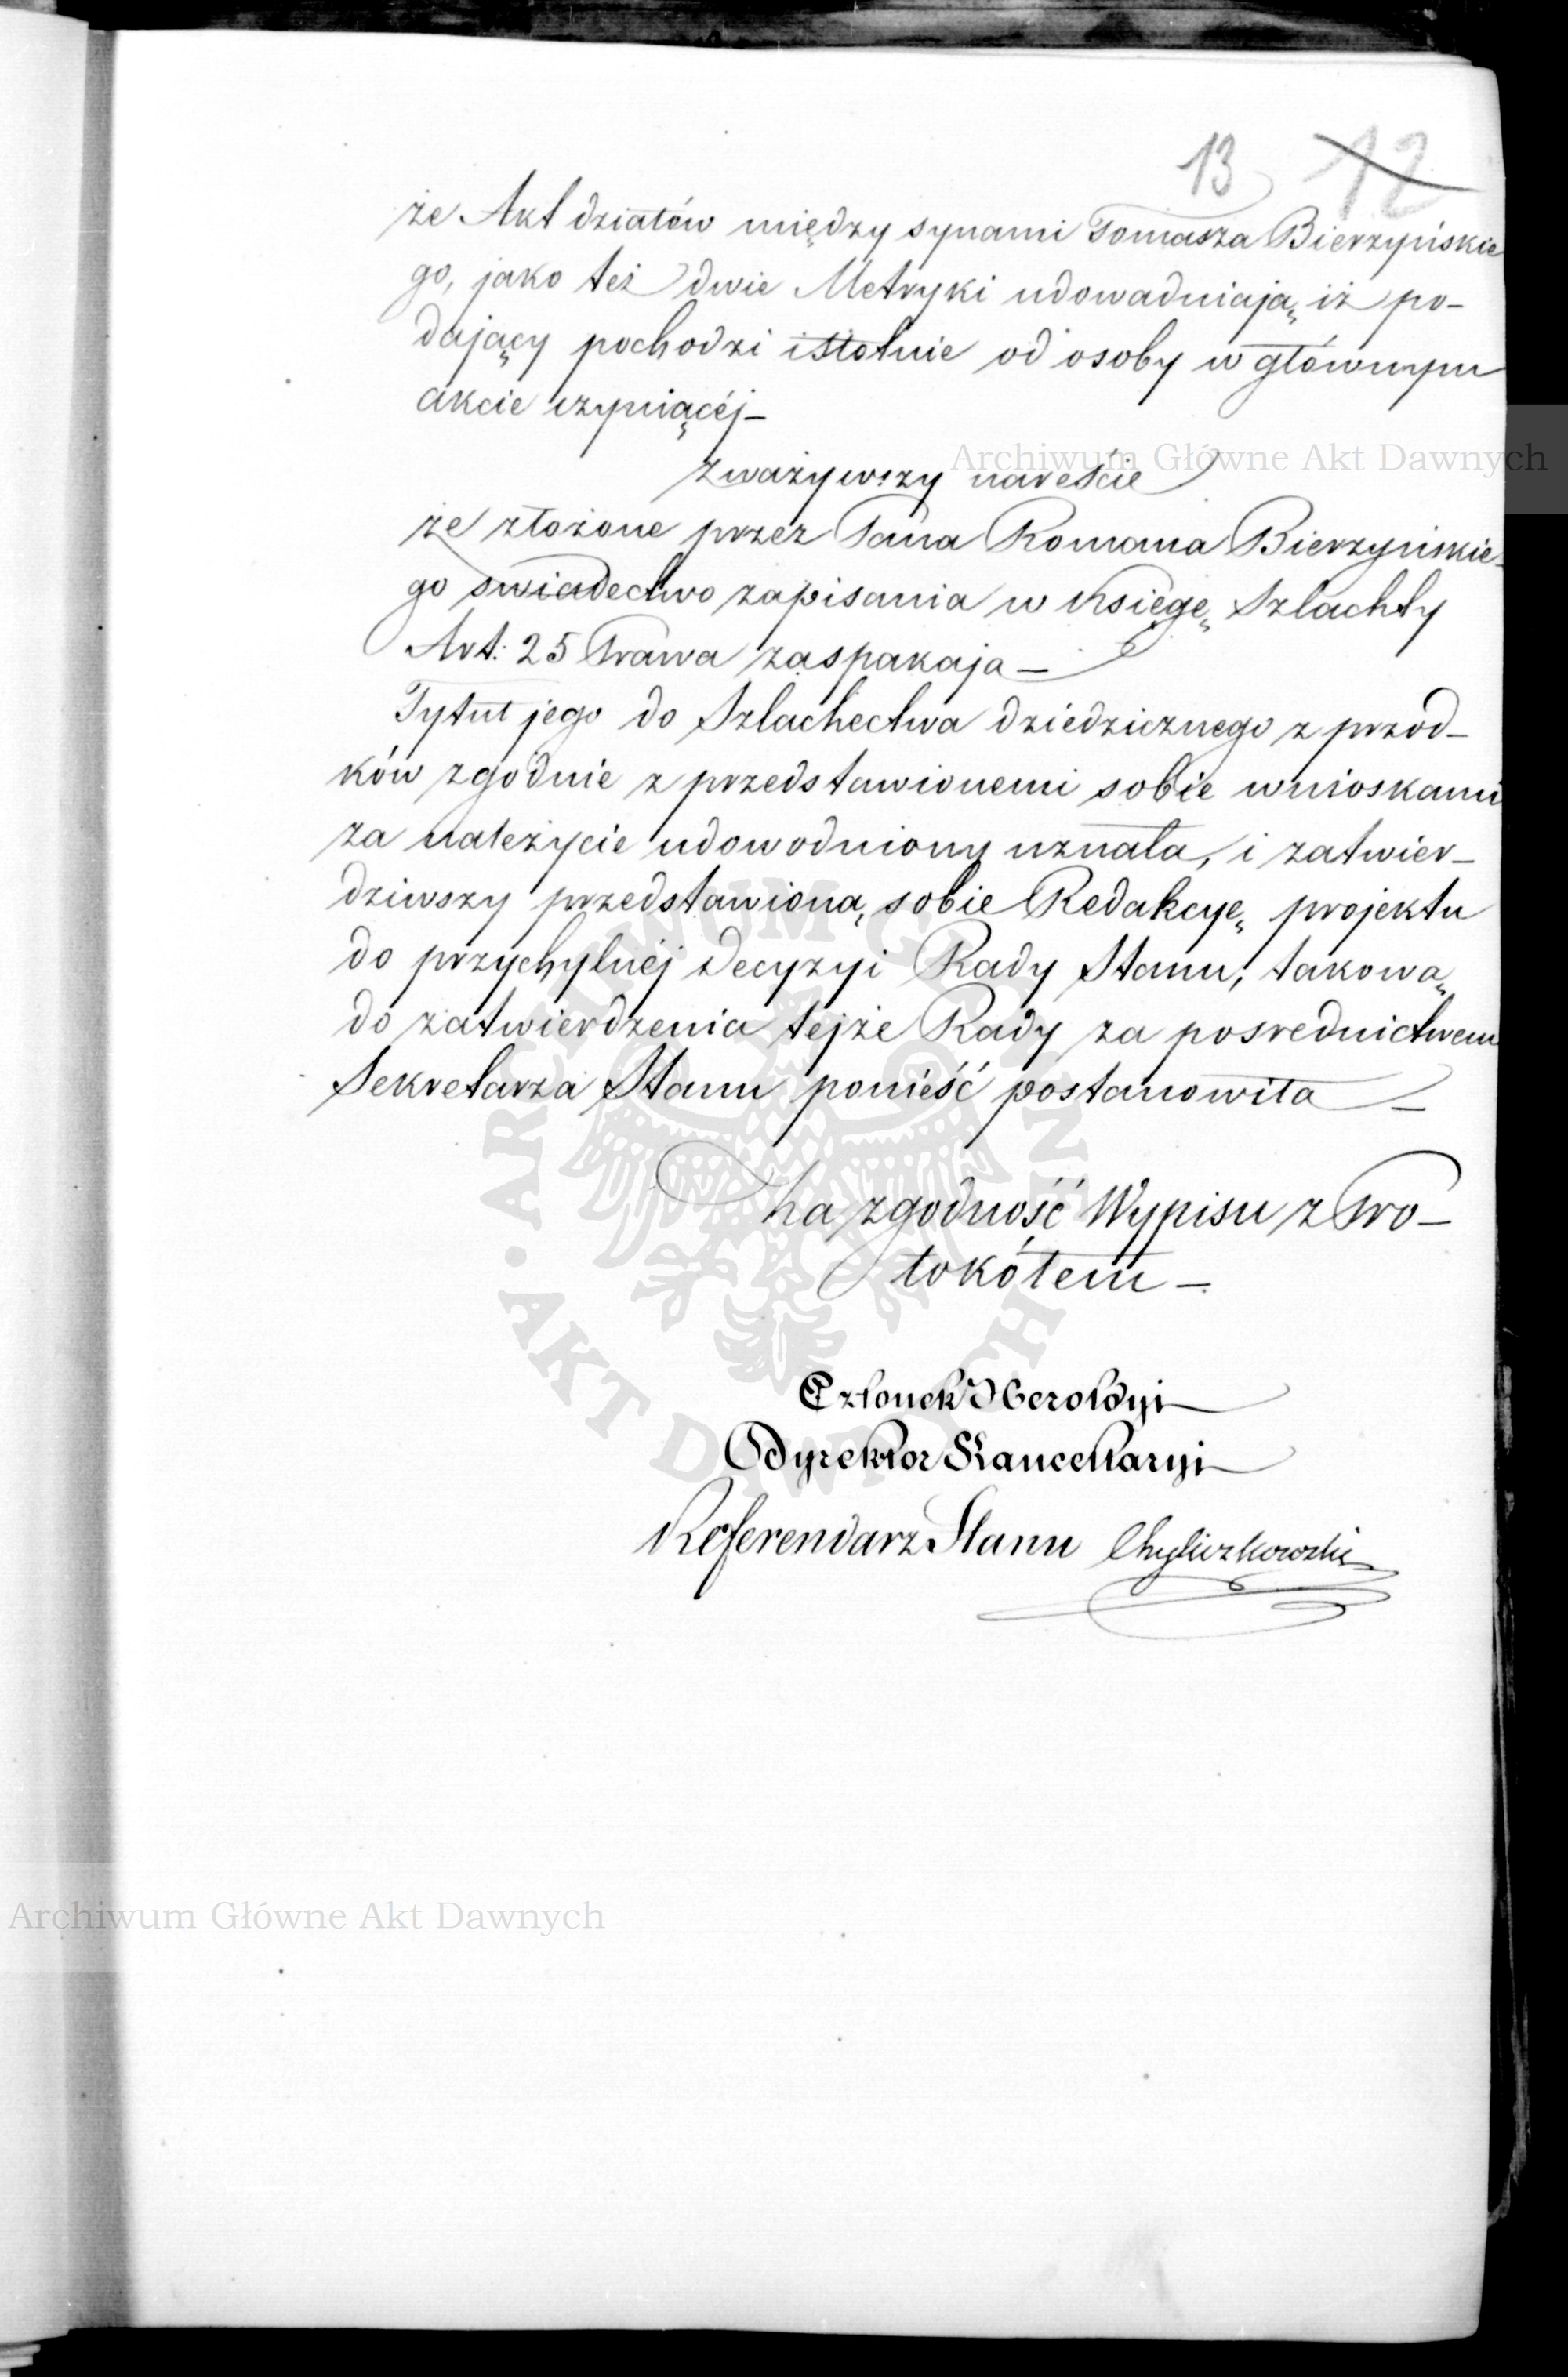 13 12
że Akt działów między synami Tomasza Bierzyńskie
go, jako też dwie Metryki udowadniają, iż po-
dający pochodzi istotnie od osoby w głównym
akcie czyniącéj-
Zważywszy nareście
że złożone przez Pana Romana Bierzyńskie-
go swiadectwo zapisania w Księgę Szlachty
Art: 25 Prawa zaspakaja-
Tytuł jego do Szlachectwa dziedzicznego z przod-
ków zgodnie z przedstawionemi sobie wnioskami
za należycie udowodniony uznała, i zatwier-
dziwszy przedstawioną sobie Redakcyę projektu
do przychylnéj decyzyi Rady Stanu, takową
do zatwierdzenia tejże Rady za posrednictwem
Sekretarza Stanu ponieść postanowiła-
Za zgodność Wypisu z Pro-
tokółem-
Członek Heroldyi
Dyrektor Kancellaryi
Referendarz Stanu Chyliczkowski
Archiwum Główne Akt Dawnych
Archiwum Główne Akt Dawnych
ARCHIWUM GŁÓWNE AKT DAWNYCH